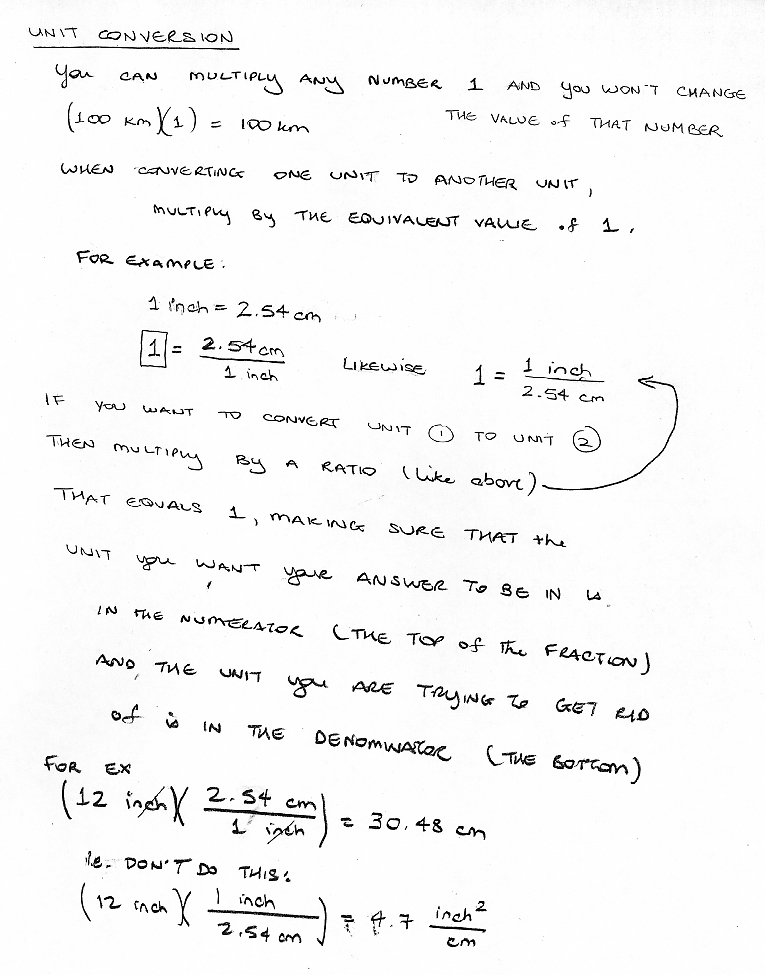 UNIT CONVERSION
You CAN MULTIPLY ANY NUMBER 1 AND you WON'T CHANGE
(100 km)(1) = 100 km THE VALUE of THAT NUMBER
WHEN CONVERTING ONE UNIT TO ANOTHER UNIT,
MULTIPLY By THE EQUIVALENT VALUE of 1.
FOR EXAMPLE:
1 inch = 2.54 cm
1 = 2.54 cm / 1 inch LIKEWISE 1 = 1 inch / 2.54 cm
IF YOU WANT TO CONVERT UNIT ① TO UNIT ②
THEN MULTIPLY By A RATIO (like above)
THAT EQUALS 1, MAKING SURE THAT the
UNIT you WANT your ANSWER TO BE IN is
IN THE NUMERATOR (THE TOP of The FRACTION)
AND THE UNIT you ARE TRYING To GET RID
of is IN THE DENOMINATOR (THE BOTTOM)
FOR EX
(12 inch)(2.54 cm / 1 inch) = 30.48 cm
i.e. DON'T DO THIS:
(12 inch)(1 inch / 2.54 cm) = 4.7 inch² / cm